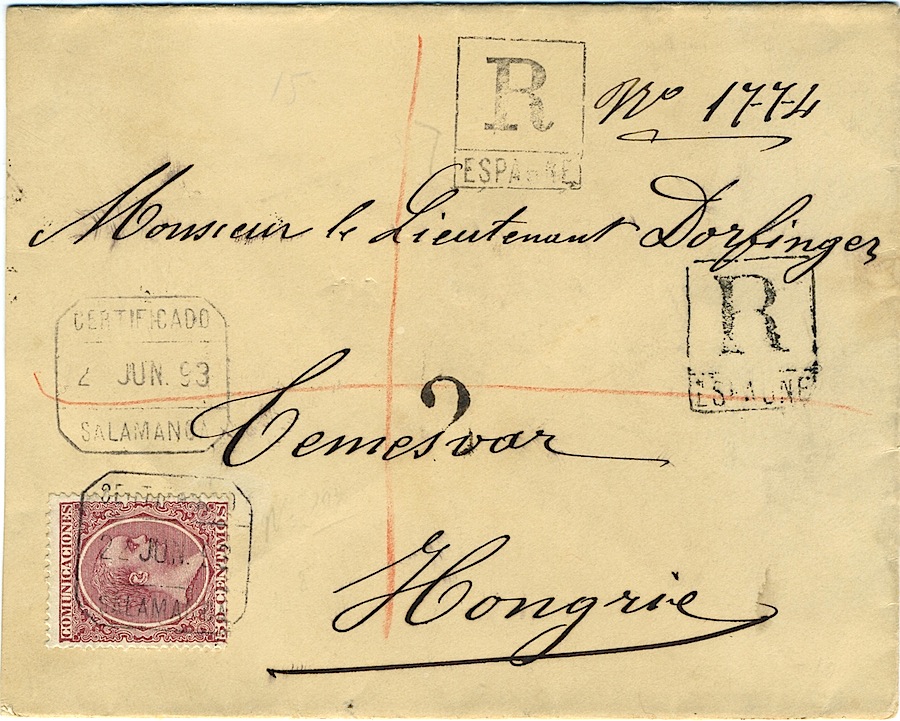 R
ESPAGNE
No 1774
Monsieur le Lieutenant Dorfinger
R
ESPAGNE
CERTIFICADO
2 JUN. 93
SALAMANCA
2
Temesvar
COMUNICACIONES
50 CENTIMOS
22 JUN.
SALAMANCA
Hongrie